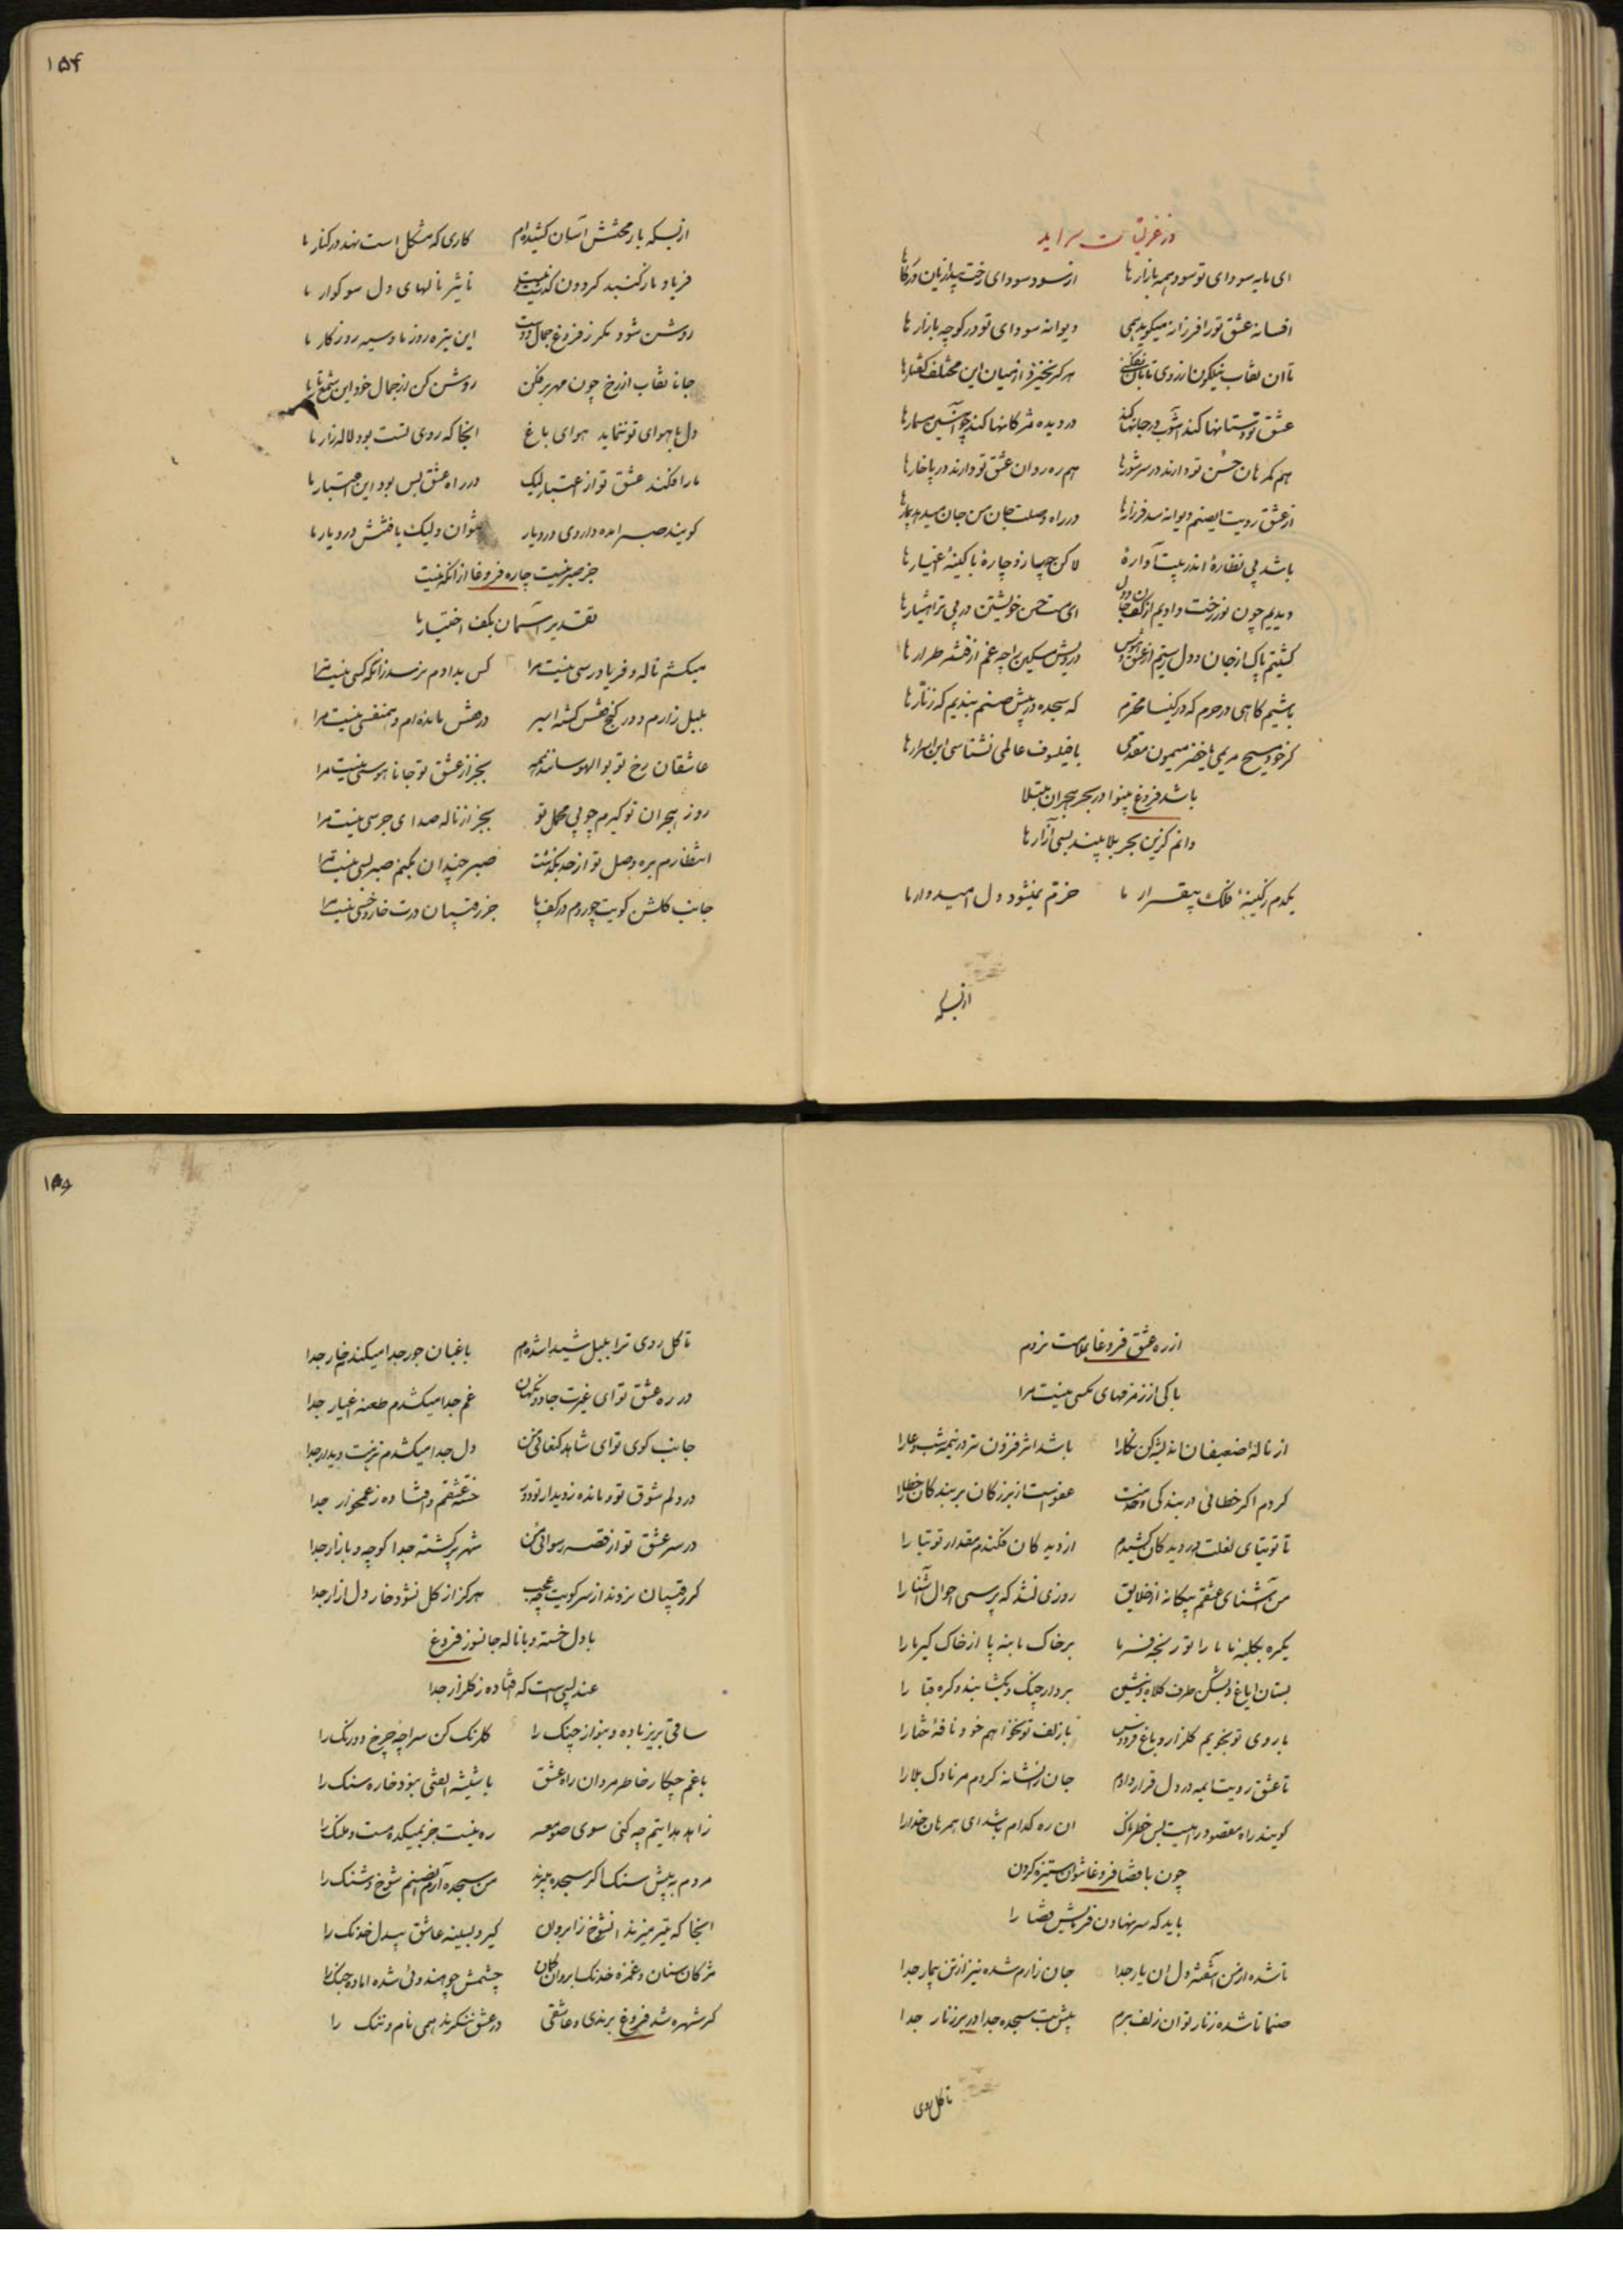 در غزلیات سراید
ای مایه سودای تو سود همه بازارها از سود سودای رخت پیدا زیان در کارها
افسانه عشق تو را فرزانه میگوید همی دیوانه سودای تو در کوچه بازارها
تا ان نقاب نیلکون از روی تابان هر کز نخیزد از میان این مختلف کفتارها
عشق تو دستانها کند آشوب در جانها کند در دیده مژکانها کند چون آتشین مسمارها
هم کمرهان حسن تو دارند در سر شورها هم ره روان عشق تو دارند در پا خارها
از عشق رویت ایصنم دیوانه شد فرزانها در راه وصلت جان من جان میدهد بیمارها
باشد پی نظاره اندر پیت آواره لاکن چه سازد چاره با کینه اغیارها
دیدیم چون نور رخت دادیم از کف جان و دل ای مست حسن خویشتن در پی ترا هشیارها
کشتیم پاک از جان و دل رستیم از عشق و هوس درویش مسکین را چه غم از فتنه طرارها
باشیم کاهی در حرم که در کنیسا محترم که سجده در پیش صنم بندیم که زنارها
کر خود مسیح مریمی یا خضر میمون مقدمی یا فیلسوف عالمی نشناسی این اسرارها
باشد فروغ بینوا در بحر هجران مبتلا
دانم کزین بحر بلا بیند بسی آزارها
یکدم ز کینه فلک بیقرار ما خرم نمیشود دل امیدوار ما
ازبسکه
۱۵۴
ازبسکه بار محنتش آسان کشیده‌ام کاری که مشکل است نهد در کنار ما
فریاد ما ز کنبد کردون کذشت نیست تاثیر نالهای دل سوکوار ما
روشن شود مکر ز فروغ جمال دوست این تیره روز ما و سیه روزکار ما
جانا نقاب از رخ چون مهر برفکن روشن کن از جمال خود این شمع تار ما
دل با هوای تو ننماید هوای باغ اینجا که روی تست بود لاله‌زار ما
ما را فکند عشق تو از اعتبار لیک در راه عشق بس بود این اعتبار ما
کویند صبر امده داروی درد یار نتوان ولیک یافتنش در دیار ما
جز صبر نیست چاره فروغا از انکه نیست
تقدیر آسمان بکف اختیار ما
میکشم ناله و فریادرسی نیست مرا کس بدادم نرسد زانکه کسی نیست مرا
بلبل زارم و در کنج قفس کشته اسیر در قفس مانده‌ام و همنفسی نیست مرا
عاشقان رخ تو بوالهوسانند همه بجز از عشق تو جانا هوسی نیست مرا
روز هجران تو کیرم چو پی محمل تو بجز از ناله صدای جرسی نیست مرا
انتظارم بره وصل تو از حد بکذشت صبر چندان بکنم صبر بسی نیست مرا
جانب کلشن کویت چو روم در کف پا جز رقیبان درت خار و خسی نیست مرا
از ره عشق فروغا بسلامت نروم
باکی از زمزمهای مکسی نیست مرا
از ناله ضعیفان اندیشه کن نکارا باشد اثر فزون‌تر در نیمه شب دعا را
کردم اکر خطائی در بندکی و خدمت عفو است از بزرکان بر بندکان خطا را
تا توتیای لعلت در دیدکان کشیدم از دیدکان فکندم مقدار توتیا را
من آشنای عشقم بیکانه از خلایق روزی نشد که پرسی احوال آشنا را
یکره بکلبه ما پا را تو رنجه فرما بر خاک ما بنه پا از خاک کیر ما را
بستان ایاغ و بشکن طرف کلاه و بنشین بردار چنک و بکشا بند و کره قبا را
با روی تو نجویم کلزار و باغ فردوس با زلف تو نخواهم خود نافه ختا را
تا عشق رویت ایمه در دل قرار دادم جان را نشانه کردم مر ناوک بلا را
کویند راه مقصود راهیست بس خطرناک ان ره کدام باشد ای همرهان خدا را
چون با قضا فروغا نتوان ستیزه کردن
باید که سر نهادن در پیش قضا را
تا شده از من آشفته دل ان یار جدا جان زارم شده نیز از تن بیمار جدا
صنما تا شده زنار تو ان زلف برم پیش بت سجده جدا دیر جدا زنار جدا
تا کل روی
۱۵۵
تا کل روی ترا بلبل شیدا شده‌ام باغبان جور جدا میکندم خار جدا
در ره عشق تو ای غیرت جادونکهان غم جدا میکشدم طعنه اغیار جدا
جانب کوی تو ای شاهد کنعانی من دل جدا میکشدم لذت دیدار جدا
در دلم شوق تو و مانده ز دیدار تو دور خسته عشقم و افتاده ز غمخوار جدا
در سر عشق تو از قصه رسوائی من شهر پر کشته جدا کوچه و بازار جدا
کر رقیبان نروند از سر کویت چه عجب هرکز از کل نشود خار دل ازار جدا
با دل خسته و با ناله جانسوز فروغ
عندلیبی است که افتاده ز کلزار جدا
ساقی بریز باده و بنواز چنک را کلرنک کن سراچه چرخ دو رنک را
با غم چکار خاطر مردان راه عشق با شیشه الفتی نبود خاره سنک را
زاهد هدایتم چه کنی سوی صومعه ره نیست جز بمیکده مست و ملنک را
مردم به پیش سنک اکر سجده میبرند من سجده آرم آن صنم شوخ و شنک را
انجا که تیر میزند انشوخ ز ابروان کیرد بسینه عاشق بیدل خدنک را
مژکان سنان و غمزه خدنک ابروان کمان چشمش چو هندوئی شده اماده جنک را
کر شهره شد فروغ برندی و عاشقی در عشق ننکرند همی نام و ننک را